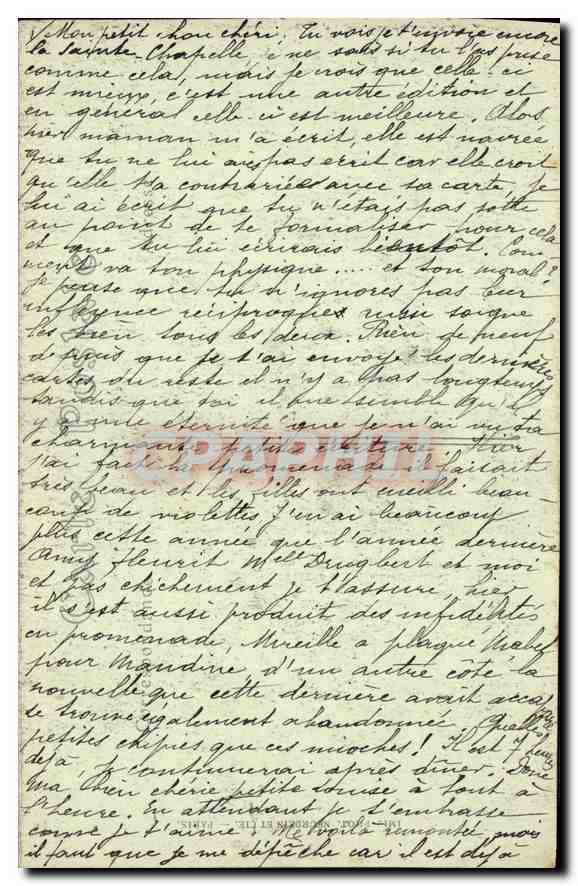 Mon petit chou chéri. Tu vois je t'envoie encore
la Sainte-Chapelle, je ne sais si tu l'as prise
comme cela, mais je crois que celle-ci
est mieux, c'est une autre édition et
en général celle-ci est meilleure. Alors
hier maman m'a écrit, elle est navrée
que tu ne lui aies pas écrit car elle croit
qu'elle t'a contrariée avec sa carte. Je
lui ai écrit que tu n'étais pas sotte
au point de te formaliser pour cela
et que tu lui écrirais bientôt. Com
ment va ton physique ..... et ton moral?
Je pense que tu n'ignores pas leur
influence réciproque aussi soigne
les bien tous les deux. Rien de neuf
depuis que je t'ai envoyé les dernières
cartes, du reste il n'y a pas longtemps
tandis que moi il me semble qu'il
y a une éternité que je n'ai vu ta
charmante petite
Hier
j'ai fait la promenade il faisait
très beau et les filles ont cueilli beau-
coup de violettes. J'en ai beaucoup
plus cette année que l'année dernière
Amy fleurit Melle Drugbert et moi
et pas chichement je t'assure, hier
il s'est aussi produit des infidélités
en promenade, Mireille a plaqué Mabel
pour Mandine d'un autre côté la
nouvelle que cette dernière avait
se trouve également abandonnée. Quelles
petites chipies que ces mioches! Il est 7 heures
déjà, je continuerai après dîner. Donc
ma bien chérie petite à tout à
l'heure. En attendant je t'embrasse
comme je t'aime. Me voilà remontée, mais
il faut que je me dépêche car il est déjà
CPARHIL
IMP. PHOT. NEURDEIN ET CIE. - PARIS.